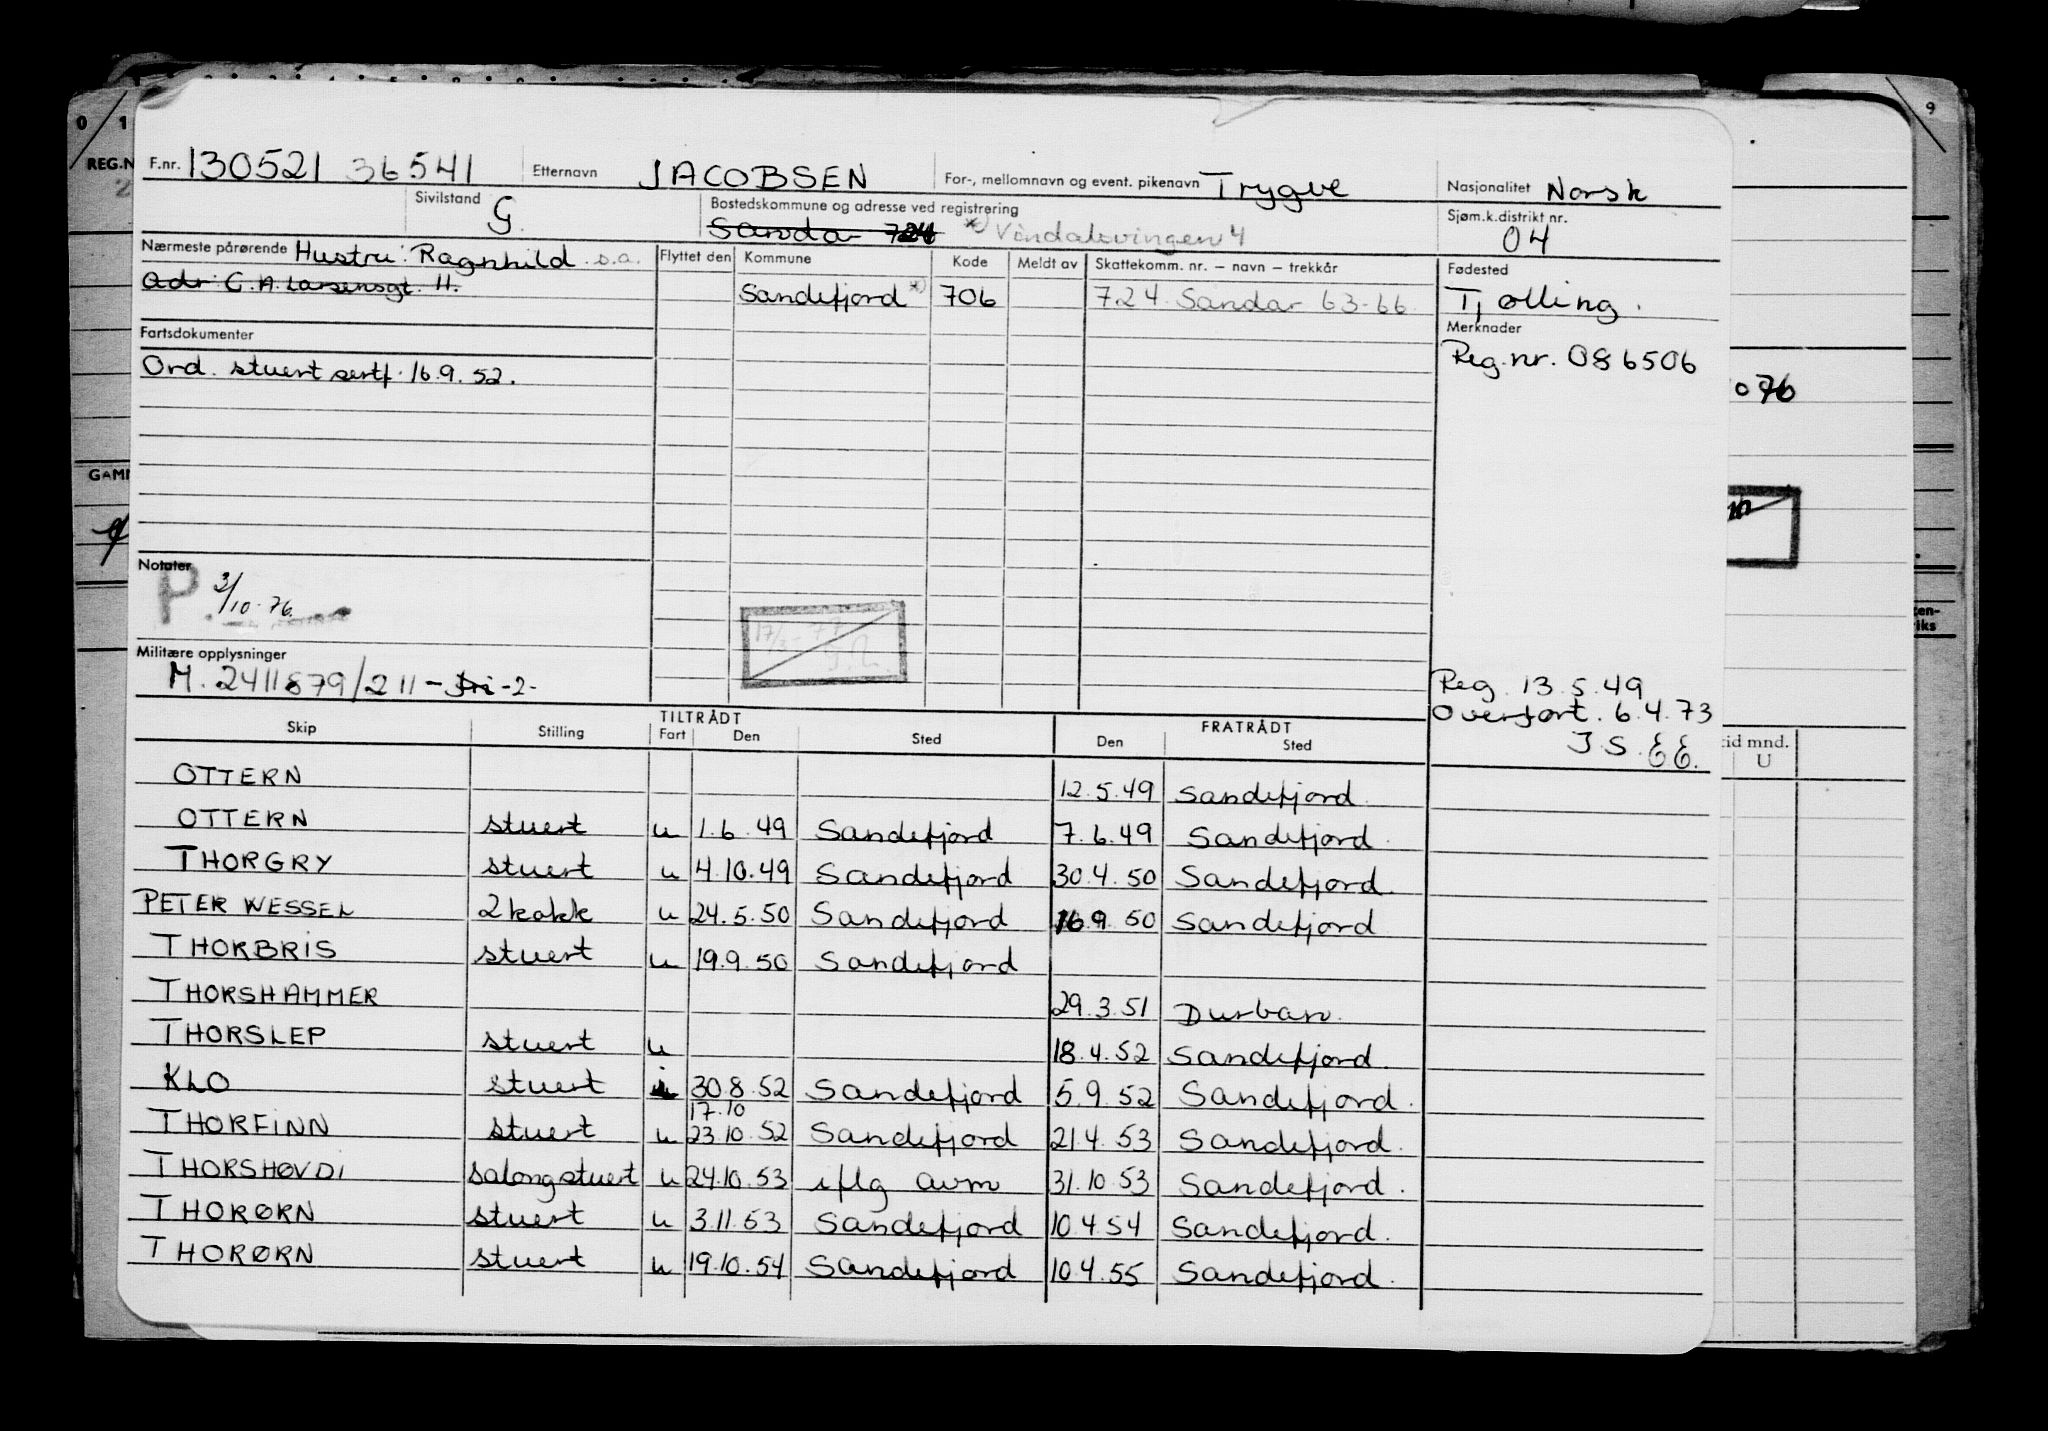 F.nr. 130521 36541 Etternavn JACOBSEN For-, mellomnavn og event. pikenavn Trygve Nasjonalitet Norsk
Sivilstand G. Bostedskommune og adresse ved registrering Sandar 724 *) Vindalsvingen 4 Sjøm.k.distrikt nr. 04
Nærmeste pårørende Hustru: Ragnhild s.a. Flyttet den Kommune Kode Meldt av Skattekomm. nr. – navn – trekkår Fødested
Adr: C. A. Larsensgt. 11. Sandefjord *) 706 724 Sandar 63-66 Tjølling.
Fartsdokumenter Merknader
Ord. stuert sertf. 16.9.52. Reg.nr. 086506
Notater
P. 3/10-76.
17/2-77
Militære opplysninger
M. 2411879/211 - -2-
Reg. 13.5.49
Overført. 6.4.73
J.S. EE.
TILTRÅDT FRATRÅDT
Skip Stilling Fart Den Sted Den Sted
OTTERN 12.5.49 Sandefjord
OTTERN stuert u 1.6.49 Sandefjord 7.6.49 Sandefjord
THORGRY stuert u 4.10.49 Sandefjord 30.4.50 Sandefjord
PETER WESSEL 2kokk u 24.5.50 Sandefjord 16.9.50 Sandefjord
THORBRIS stuert u 19.9.50 Sandefjord
THORSHAMMER 29.3.51 Durban.
THORSLEP stuert u 18.4.52 Sandefjord.
KLO stuert 30.8.52 Sandefjord 5.9.52 Sandefjord.
17.10
THORFINN stuert u 23.10.52 Sandefjord 21.4.53 Sandefjord.
THORSHØVDI salongstuert u 24.10.53 iflg avm 31.10.53 Sandefjord.
THORØRN stuert u 3.11.53 Sandefjord 10.4.54 Sandefjord.
THORØRN stuert u 19.10.54 Sandefjord 10.4.55 Sandefjord.
0 1
REG.N
GAM
9
076
id mnd.
U